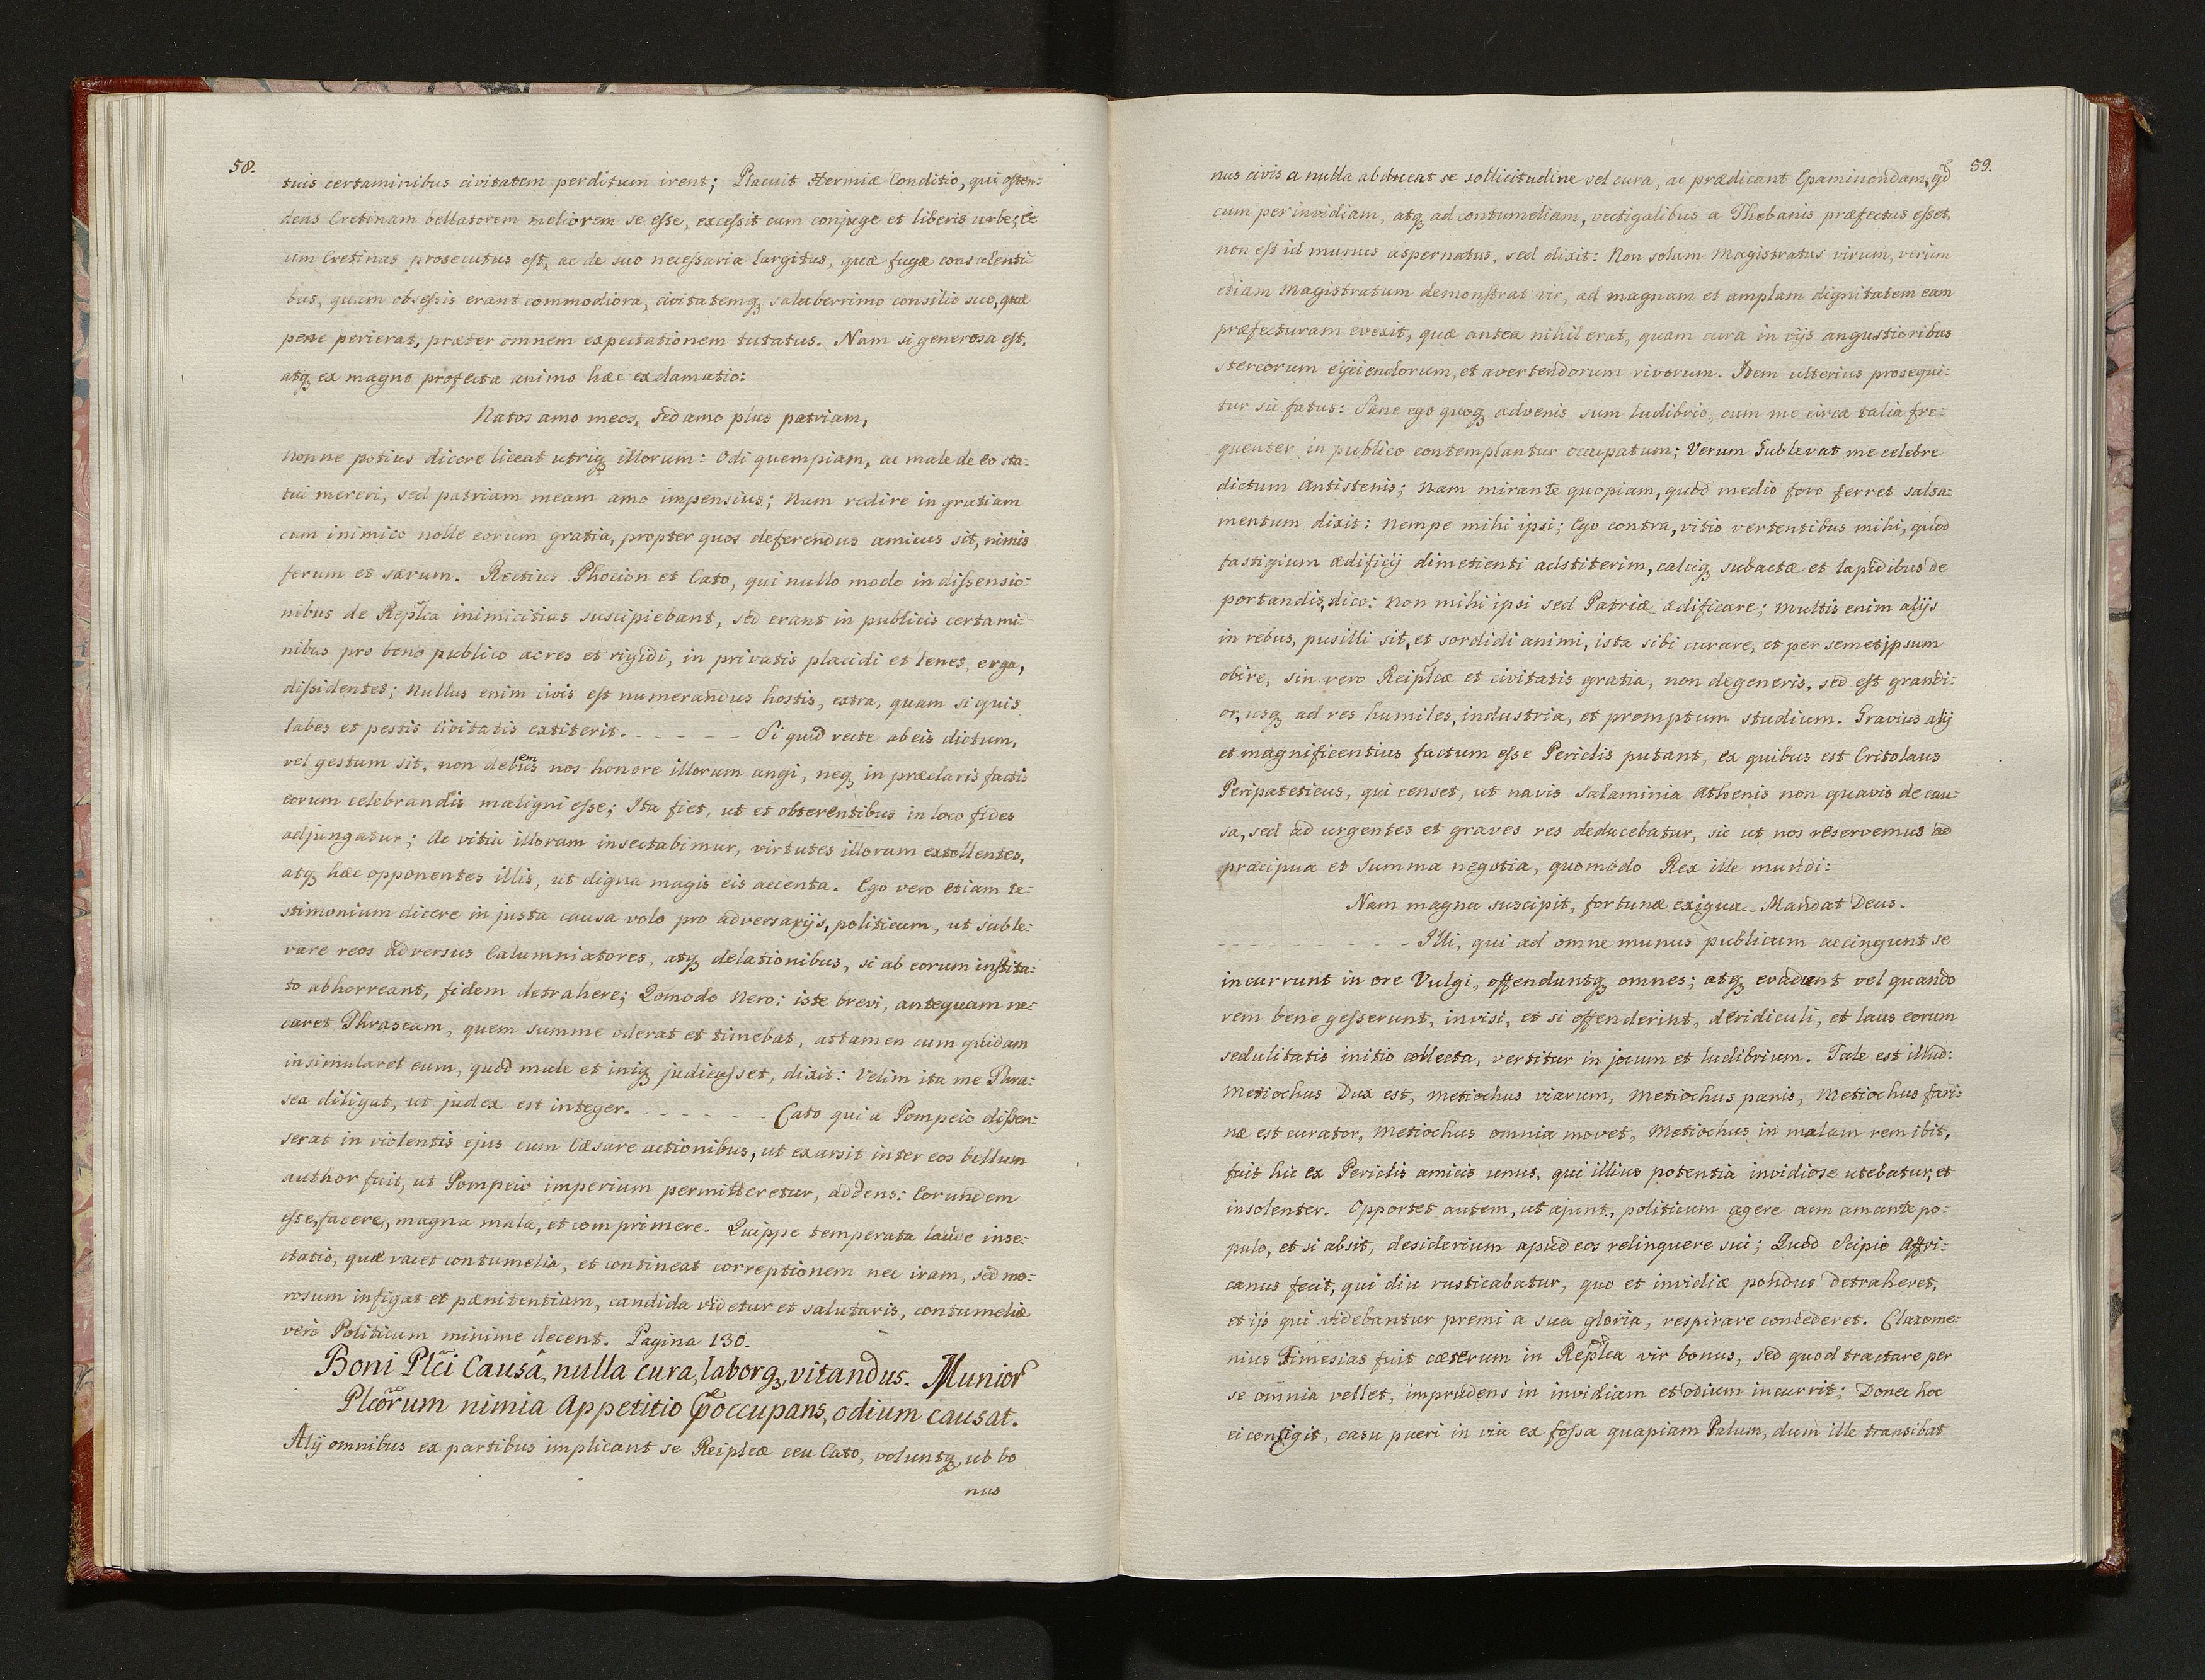 58.
tuis certaminibus civitatem perditum irent; Placuit Hermiæ Conditio, qui osten:
dens Cretinam bellatorem meliorem se esse, excessit cum conjuge et liberis urbe;
um Cretinas prosecutus est, ac de suo necessaria largitus, quæ fugæ consulenti
bus, quam obsessis erant commodiora, civitatemq3 saluberrimo consilio suo, quæ
pene perierat, præter omnem expectationem tutatus. Nam si generosa est,
atq3 ex magno profecta animo hæc exclamatio:
Natos amo meos, sed amo plus patriam,
nonne potius dicere liceat utriq3 illorum: Odi quempiam, ac male de eo sta:
tui mereri, sed patriam meam amo impensius; Nam redire in gratiam
cum inimico nolle eorum gratia, propter quos deferendus amicus sit, nimis
ferum et sævum. Rectius Phocion et Cato, qui nullo modo in dissensio:
nibus de Replca inimicitias suscipiebant, sed erant in publicis certami:
nibus pro bono publico acres et rigidi, in privatis placidi et lenes, erga,
dissidentes; Nullus enim civis est numerandus hostis, extra, quam si quis
labes et pestis Civitatis extiterit. - - - - - - Si quid recte ab eis dictum,
vel gestum sit, non debemus nos honore illorum angi, neq3 in præclaris factis
eorum celebrandis maligni esse; Ita fiet, ut et obterentibus in loco fides
adjungatur; Ac vitia illorum insectabimur, virtutes illorum extollentes,
atq3 hæc opponentes illis, ut digna magis eis accenta. Ego vero etiam te:
stimonium dicere in justa causa volo pro adversarijs, politicum, ut suble:
vare reos adversus Calumniatores, atq3 delationibus, si ab eorum institu:
to abhorreant, fidem detrahere; Qomodo Nero: iste brevi, antequam ne:
caret Thraseam, quem summe oderat et timebat, attamen cum quidam
insimularet eum, quod male et iniq3 judicasset, dixit: Velim ita me Thra:
sea diligat, ut judex est integer. - - - - - - - Cato qui a Pompeio dissen:
serat in violentis ejus cum Cæsare actionibus, ut exarsit inter eos bellum
author fuit, ut Pompeio imperium permitteretur, addens: Eorundem
esse, facere, magna mala, et comprimere. Quippe temperata laude inse:
ctatio, quæ vacet contumelia, et contineat correptionem nec iram, sed mo:
rosum infigat et pænitentiam, candida videtur et salutaris, contumeliæ
vero Politicum minime decent. Pagina 130.
Boni Plci Causâ, nulla cura, laborq3, vitandus. Munior
Plcorum nimia Appetitio poccupans, odium causat.
Alij omnibus ex partibus implicant se Reiplcæ ceu Cato, voluntq3, ut bo
nus
59.
nus civis a nulla abducat se sollicitudine vel cura, ac prædicant Epaminondam, qd
cum per invidiam, atq3 ad contumeliam, vectigalibus a Thebanis præfectus esset,
non est id munus aspernatus, sed dixit: Non solum Magistratus virum, verum
etiam Magistratum demonstrat vir, ad magnam et amplam dignitatem eam
præfecturam evexit, quæ antea nihil erat, quam cura in vijs angustioribus
stercorum eijciendorum, et avertendorum rivorum. Idem ulterius prosequi:
tur sic fatus: Sane ego quoq3 advenis sum ludibrio, cum me circa talia fre:
quenter in publico contemplantur occupatum; Verum Sublevat me celebre
dictum Antistenis; Nam mirante quopiam, quod medio foro ferret salsa:
mentum dixit: Nempe mihi ipsi; Ego contra, vitio vertentibus mihi, quod
fastigium ædificij dimetienti adstiterim, calciq3 subactæ et lapidibus de
portandis, dico: Non mihi ipsi sed Patriæ ædificare; Multis enim alijs
in rebus, pusilli sit, et sordidi animi, ista sibi curare, et per semetipsum
obire, sin vero Reiplcæ et civitatis gratia, non degeneris, sed est grandi:
or, usq3 ad res humiles, industria, et promptum studium. Gravius alij
et magnificentius factum esse Periclis putant, ex quibus est Critolaus
Peripateticus, qui censet, ut navis Salaminia Athenis non quavis de cau:
sa, sed ad urgentes et graves res deducebatur, sic ut nos reservemus ad
præcipua et Summa negotia, quomodo Rex ille mundi:
Nam magna suscipit, fortunæ exigua Mandat Deus.
- - - - - - - - - - Illi, qui ad omne munus publicum accingunt se
incurrunt in ore Vulgi, offenduntq3 omnes; atq3 evadunt vel quando
rem bene gesserunt, invisi, et si offenderint, deridiculi, et laus eorum
sedulitatis initio collecta, vertitur in jocum et ludibrium. Tale est illud:
Metiochus Dux est, Metiochus viarum, Metiochus panis, Metiochus fari:
næ est curator, Metiochus omnia movet, Metiochus in malam rem ibit,
fuit hic ex Periclis amicis unus, qui illius potentia invidiose utebatur, et
insolenter. Opportet autem, ut ajunt, politicum agere cum amante po:
pulo, et si absit, desiderium apud eos relinquere sui; Quod Scipio Affri:
canus fecit, qui diu rusticabatur, quo et invidiæ pondus detraheret,
et ijs qui videbantur premi a sua gloria, respirare concederet. Clazome:
nius Timesias fuit cæterum in Replca vir bonus, sed quod tractare per
se omnia vellet, imprudens in invidiam et odium incurrit; Donec hoc
ei contigit, casu pueri in via ex fossa quapiam Talum, dum ille transibat